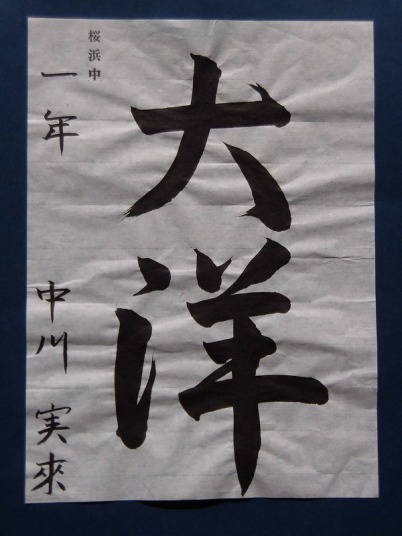 大洋
桜浜中
一年 中川 実來